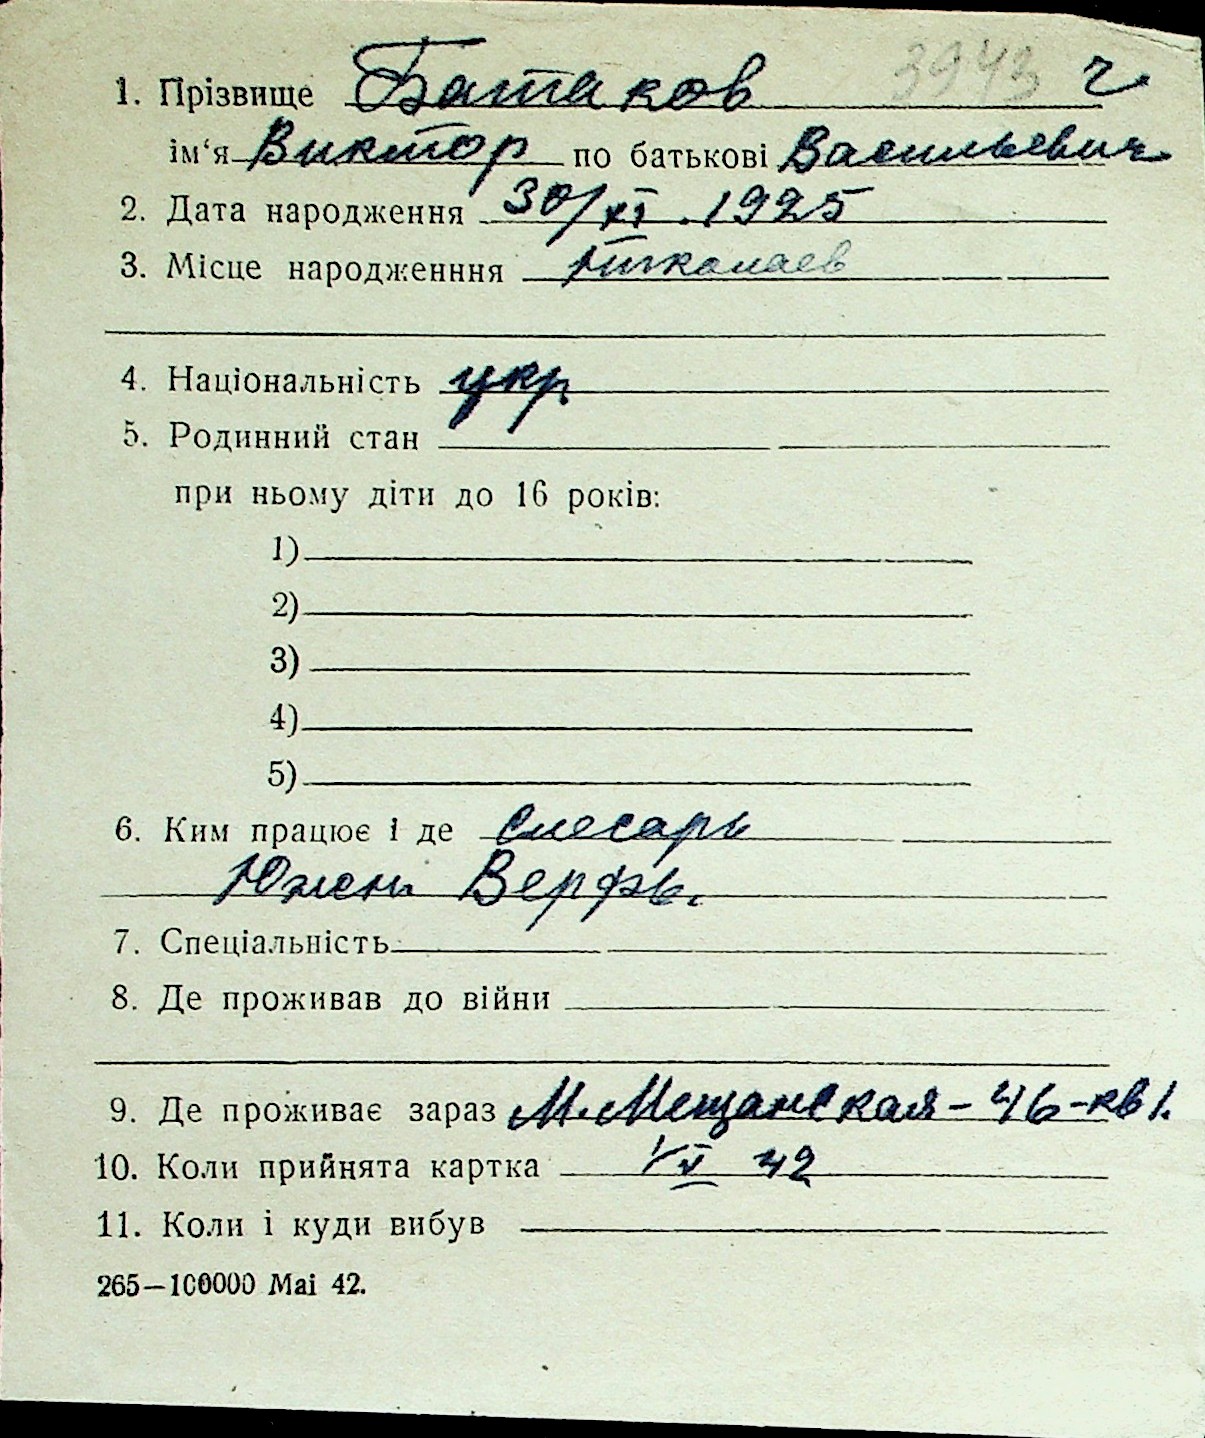 3943 г
1. Прізвище Батаков
ім‘я Виктор по батькові Васильевич
2. Дата народження 30/XI .1925
3. Місце народженння Николаев
4. Національність укр.
5. Родинний стан
при ньому діти до 16 років:
1)
2)
3)
4)
5)
6. Ким працює і де Слесарь
Южн. Верфь.
7. Спеціальність
8. Де проживав до війни
9. Де проживає зараз М. Мещанская - 46 - кв 1.
10. Коли прийнята картка 42
11. Коли і куди вибув
265—100000 Mai 42.